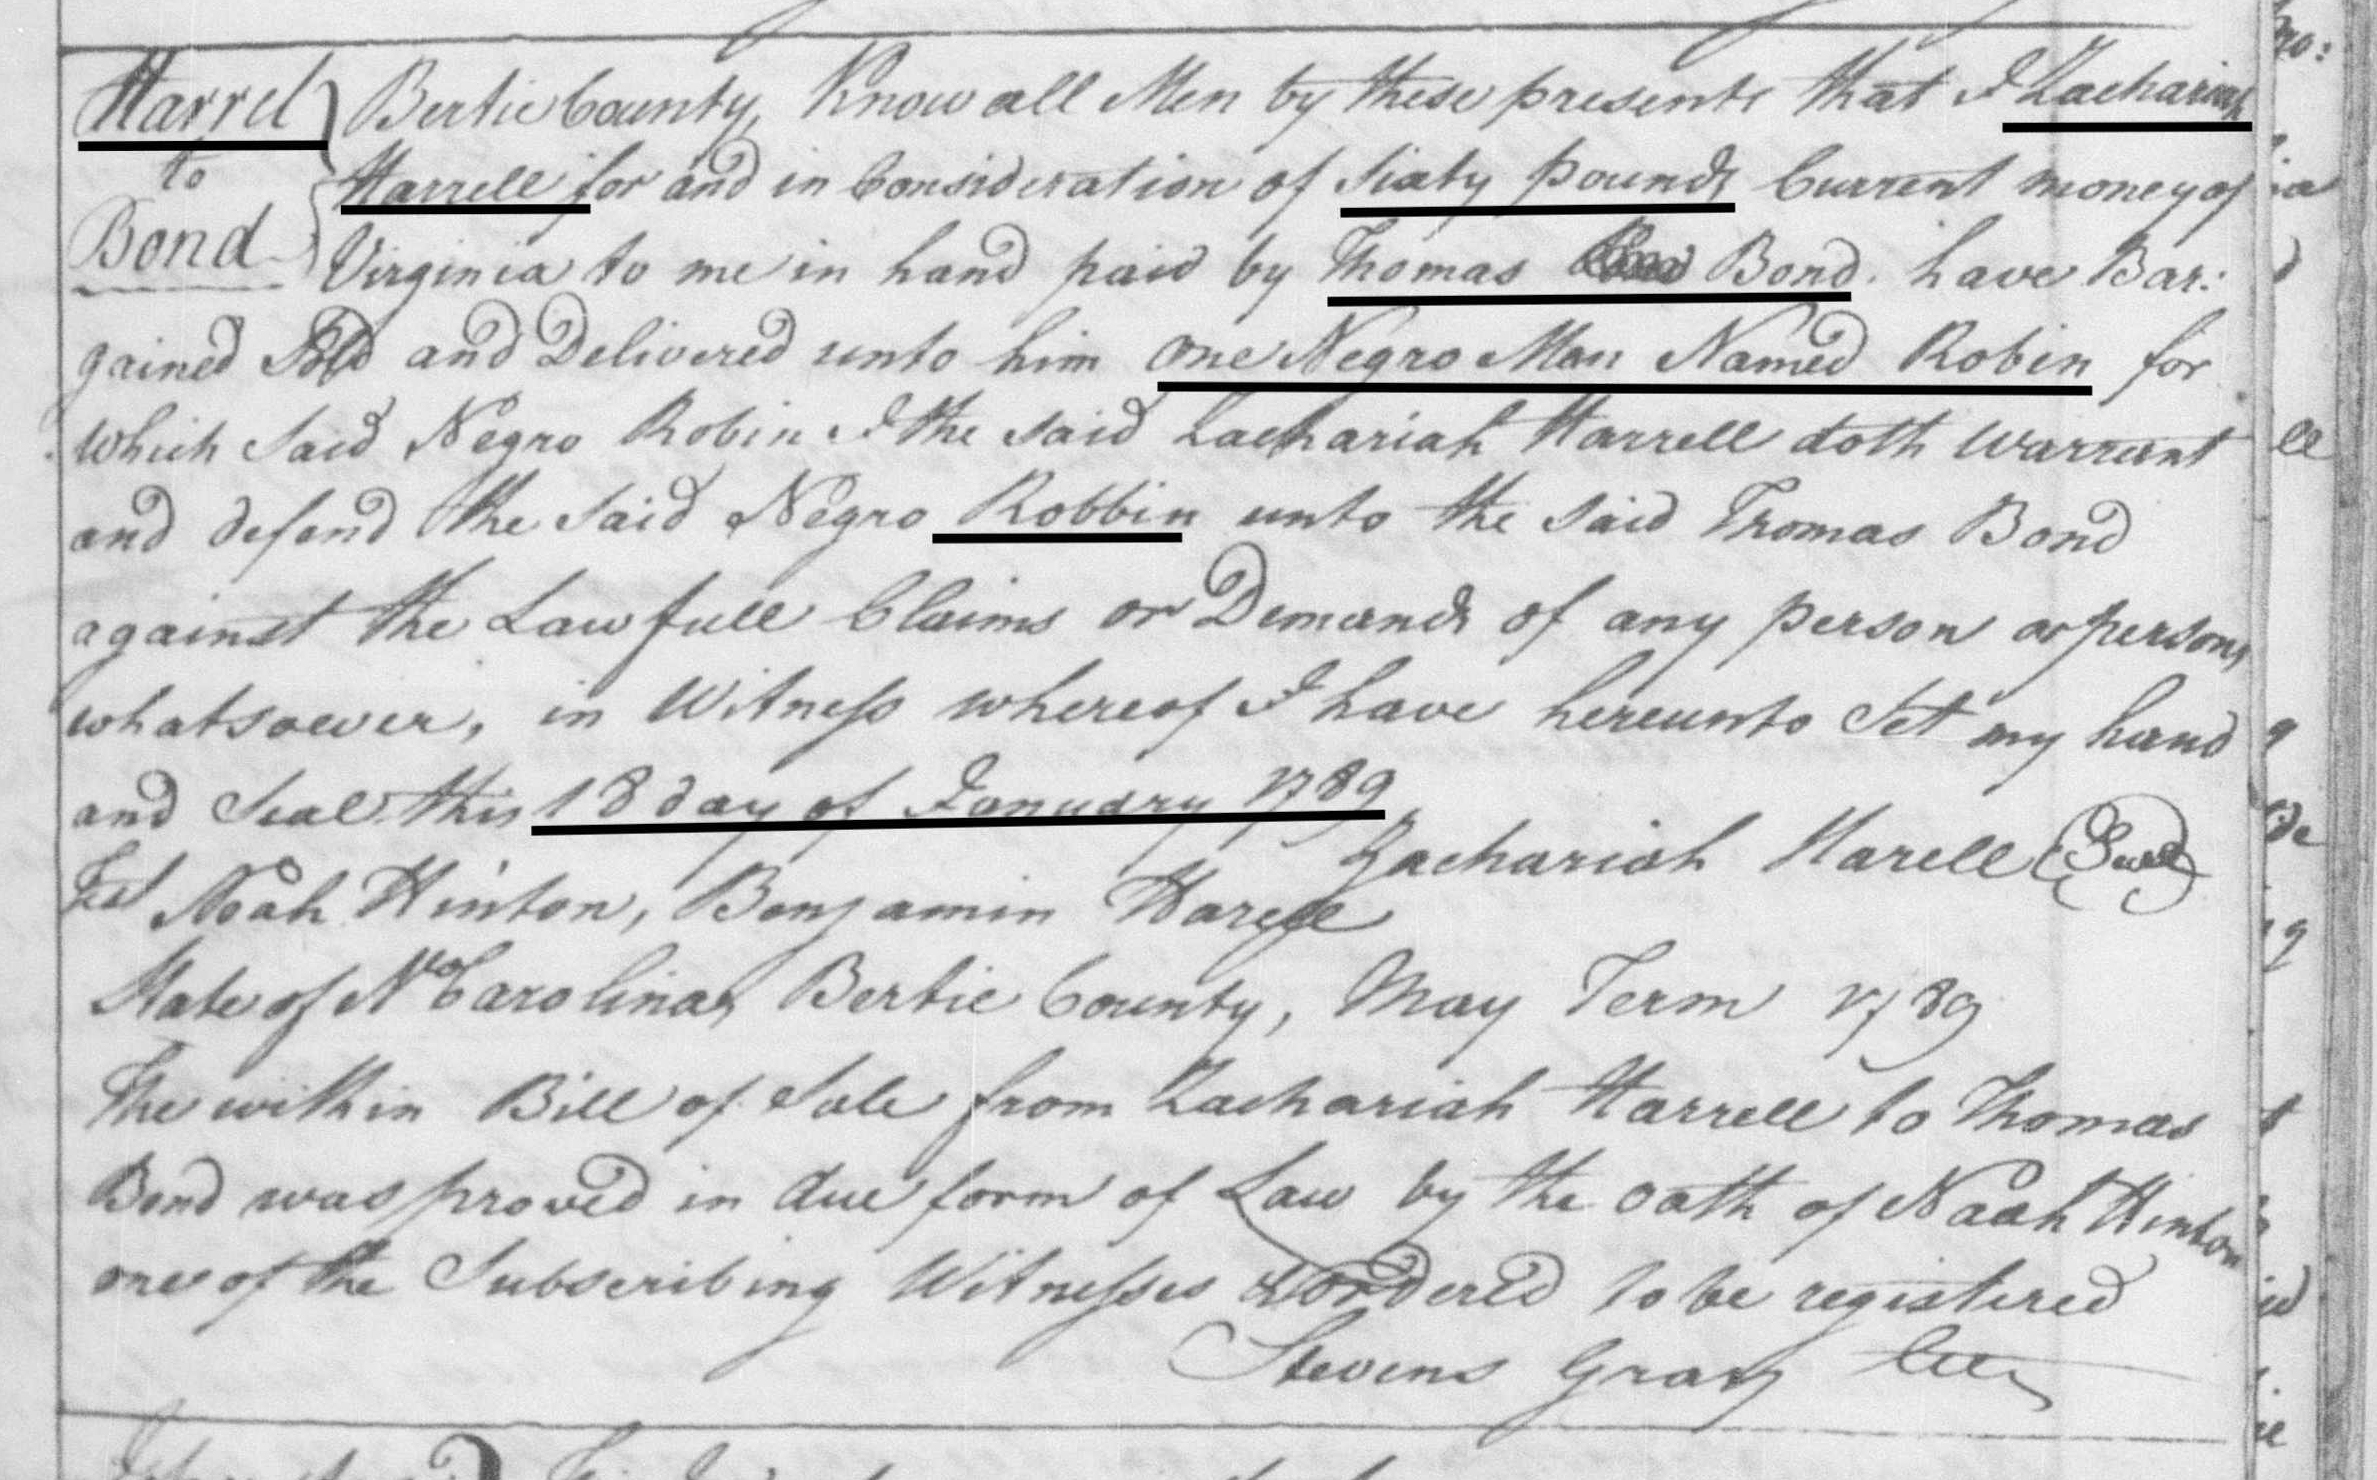 Harrel
to
Bond
Bertie County, Know all Men by these presents that I Zachariah
Harrell for and in Consideration of Sixty pounds Current money of
Virginia to me in hand paid by Thomas Bond. have Bar:
gained Sold and Delivered unto him one Negro Man Named Robin for
which Said Negro Robin I the said Zachariah Harrell doth warrant
and defend the Said Negro Robbin unto the Said Thomas Bond
against the Lawfull Claims or Demands of any person or persons
whatsoever, in Witness whereof I have hereunto Set my hand
and Seal this 18 day of January 1789
Zachariah Harell Seal
Test Noah Hinton, Benjamin Harell
State of No Carolina, Bertie County, May Term 1789
The within Bill of Sale from Zachariah Harrell to Thomas
Bond was proved in due form of Law by the oath of Noah Hinton
one of the Subscribing Witnesses & ordered to be registered
Stevens Gray